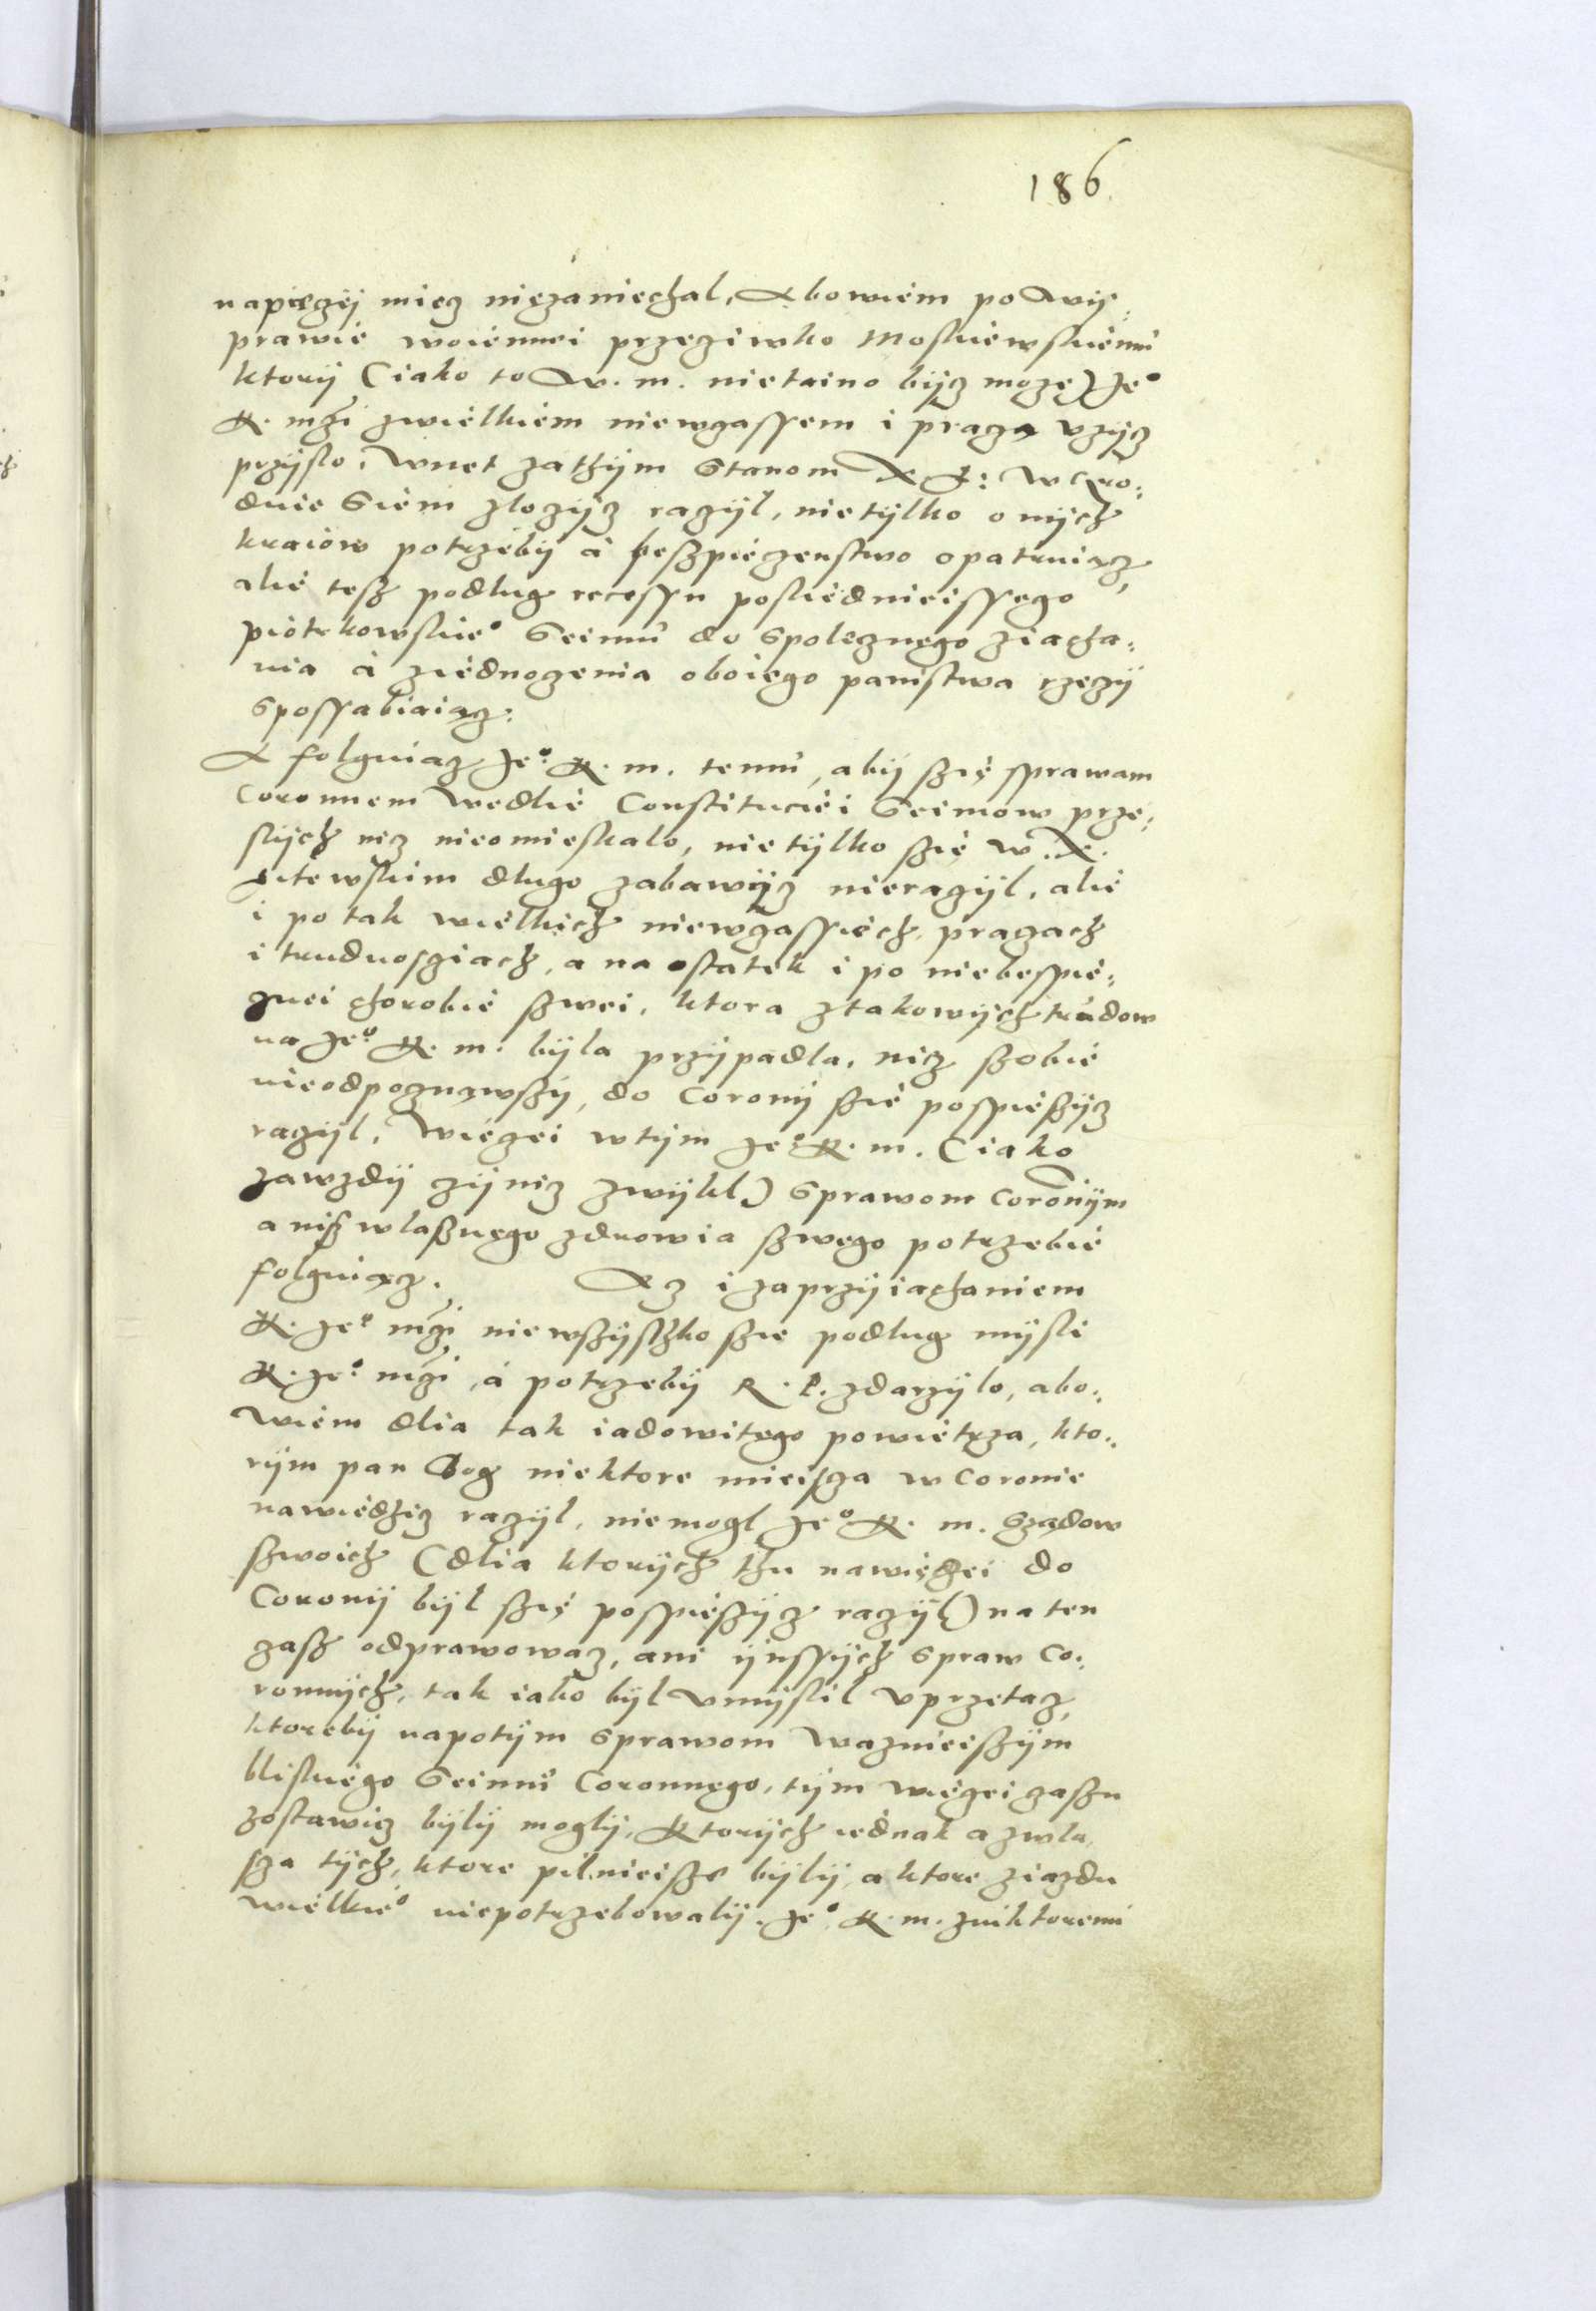 186
napieczÿ miecz niezaniechal, Abowiem po wÿ:
prawie woiennei przeciwko Moskiewskiemu
ktorÿ (iako to W. m. nietaino bÿcz moze) Je°
K. mczi zwielkiem niewczassem i praczą vzÿcz
przÿslo, Wnet zathÿm Stanom X L: w Gro:
dnie Siem zlozÿcz raczÿl, nietÿlko onÿch
kraiow potrzebÿ á beszpieczenstwo opatruiącz,
alie tesz podlug recessu posliednieissego
piotrkowskie° Seimu do spolecznego ziacha:
nia á ziednoczenia oboiego panistwa rzeczÿ
sposabiaiącz.
A folguiącz Je° K. m. temu, abÿ szię sprawam
Coronnem wedlie Constituciei Seimow prze:
slÿch nicz nieomieskalo, nietÿlko szię w X.
Litewskim dlugo zabawÿcz nieraczÿl, alie
i po tak wielkich niewczassiech, praczach
i trudnosciach, a na ostatek i po niebespie:
cznei chorobie szwei, ktora ztakowÿch trudow
na Je° K. m. bÿla przÿpadla, nicz szobie
nieodpocznąwszÿ, do Coronÿ szie pospieszÿcz
raczÿl, Wieczei wtÿm Je° K. m. (iako
zawzdÿ czÿnicz zwÿkl) Sprawom Coronÿm
anisz wlasznego zdrowia szwego potrzebie
folguiącz. Acz i zaprzÿiachaniem
K. Je° mczi niewszÿsthko szie podlug mÿsli
K. Je° mczi, á potrzebÿ R. P. zdarzÿlo, abo:
wiem dlia tak iadowitego powietrza, kto:
rÿm pan Bog niektore mieisca w Coronie
nawiedzicz raczÿl, niemogl Je° K. m. Sządow
szwoich (dlia ktorÿch thu nawięcei do
Coronÿ bÿl szię pospieszÿcz raczÿl) na ten
czasz odprawowacz, ani ÿnssÿch spraw Co:
ronnÿch, tak iako bÿl vmÿslil vprzetacz,
ktorebÿ napotÿm Sprawom waznieiszÿm
bliskiego Seimu Coronnego, tÿm wieczei czaszu
zostawicz bÿlÿ moglÿ, Ktorÿch iednak a zwla
sza tÿch, ktore pilnieisze bÿlÿ, a ktore ziazdu
wielkie° niepotrzebowalÿ. Je° K. m. zniktoremi